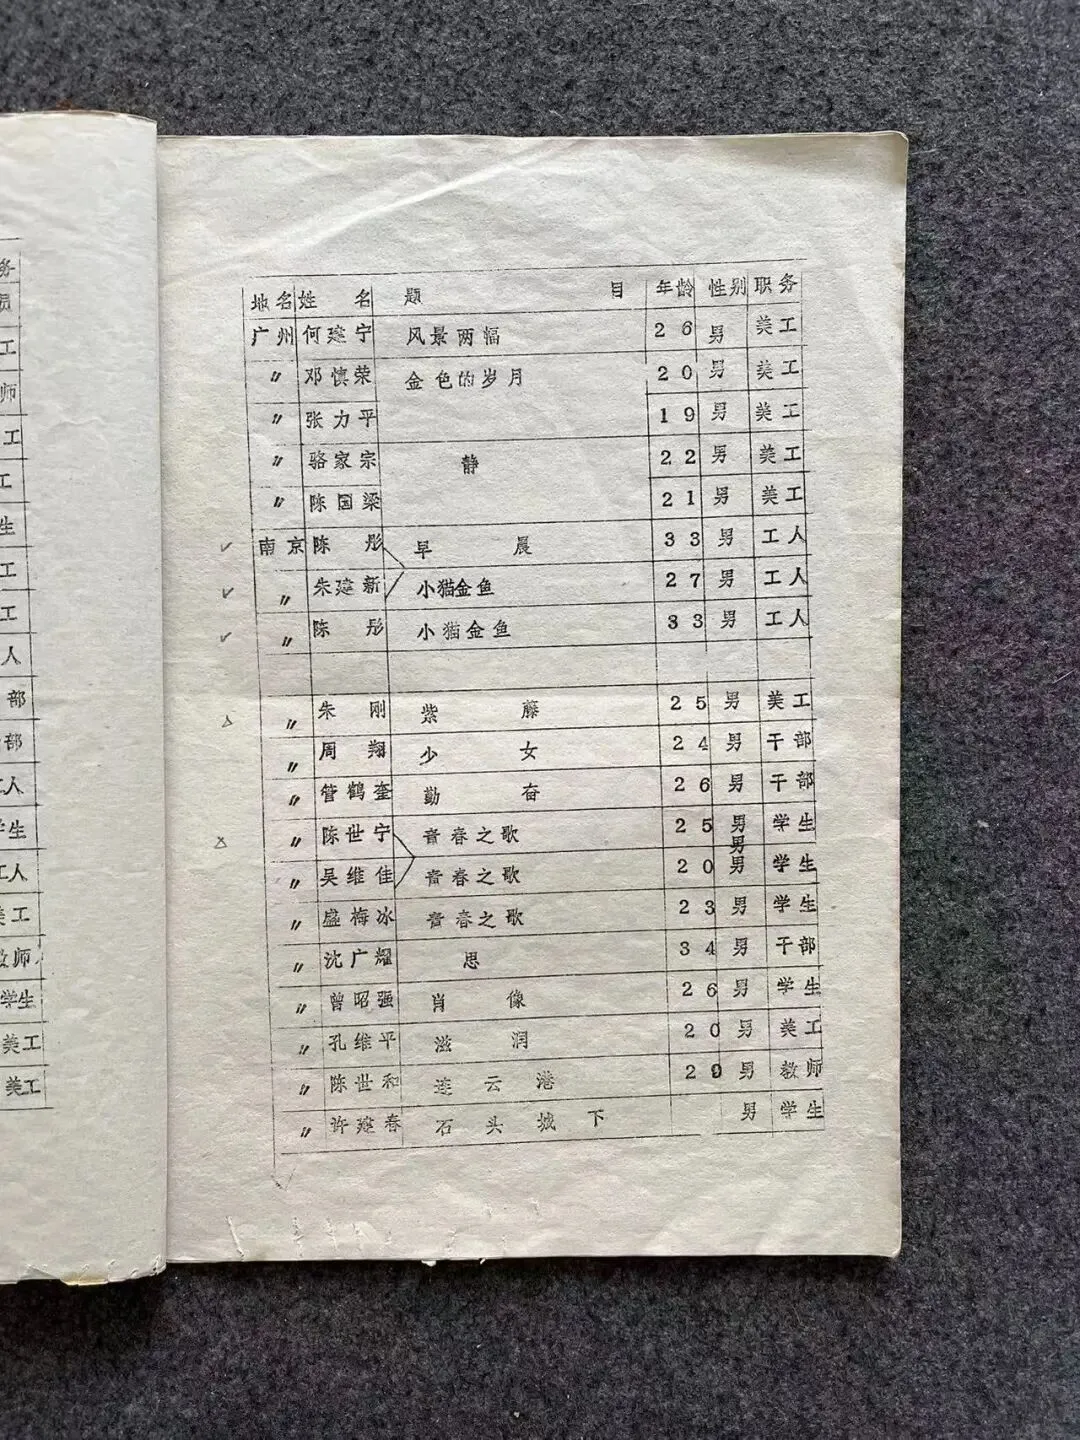 务
员
工
师
工
工
生
工
工
人
部
部
工人
学生
工人
美工
教师
学生
美工
美工
地名 姓 名 题 目 年龄 性别 职务
广州 何建宁 风景两幅 26 男 美工
〃 邓慎荣 金色的岁月 20 男 美工
〃 张力平 19 男 美工
〃 骆家宗 静 22 男 美工
〃 陈国梁 21 男 美工
✓ 南京 陈 彤 早 晨 33 男 工人
✓ 〃 朱建新 小猫金鱼 27 男 工人
✓ 〃 陈 彤 小猫金鱼 33 男 工人
△ 〃 朱 刚 紫 藤 25 男 美工
〃 周 翔 少 女 24 男 干部
〃 管鹤奎 勤 奋 26 男 干部
△ 〃 陈世宁 青春之歌 25 男 学生
男
〃 吴维佳 青春之歌 20 男 学生
〃 盛梅冰 青春之歌 23 男 学生
〃 沈广耀 思 34 男 干部
〃 曾昭强 肖 像 26 男 学生
〃 孔维平 滋 润 20 男 美工
〃 陈世和 连云港 29 男 教师
〃 许建春 石头城下 男 学生